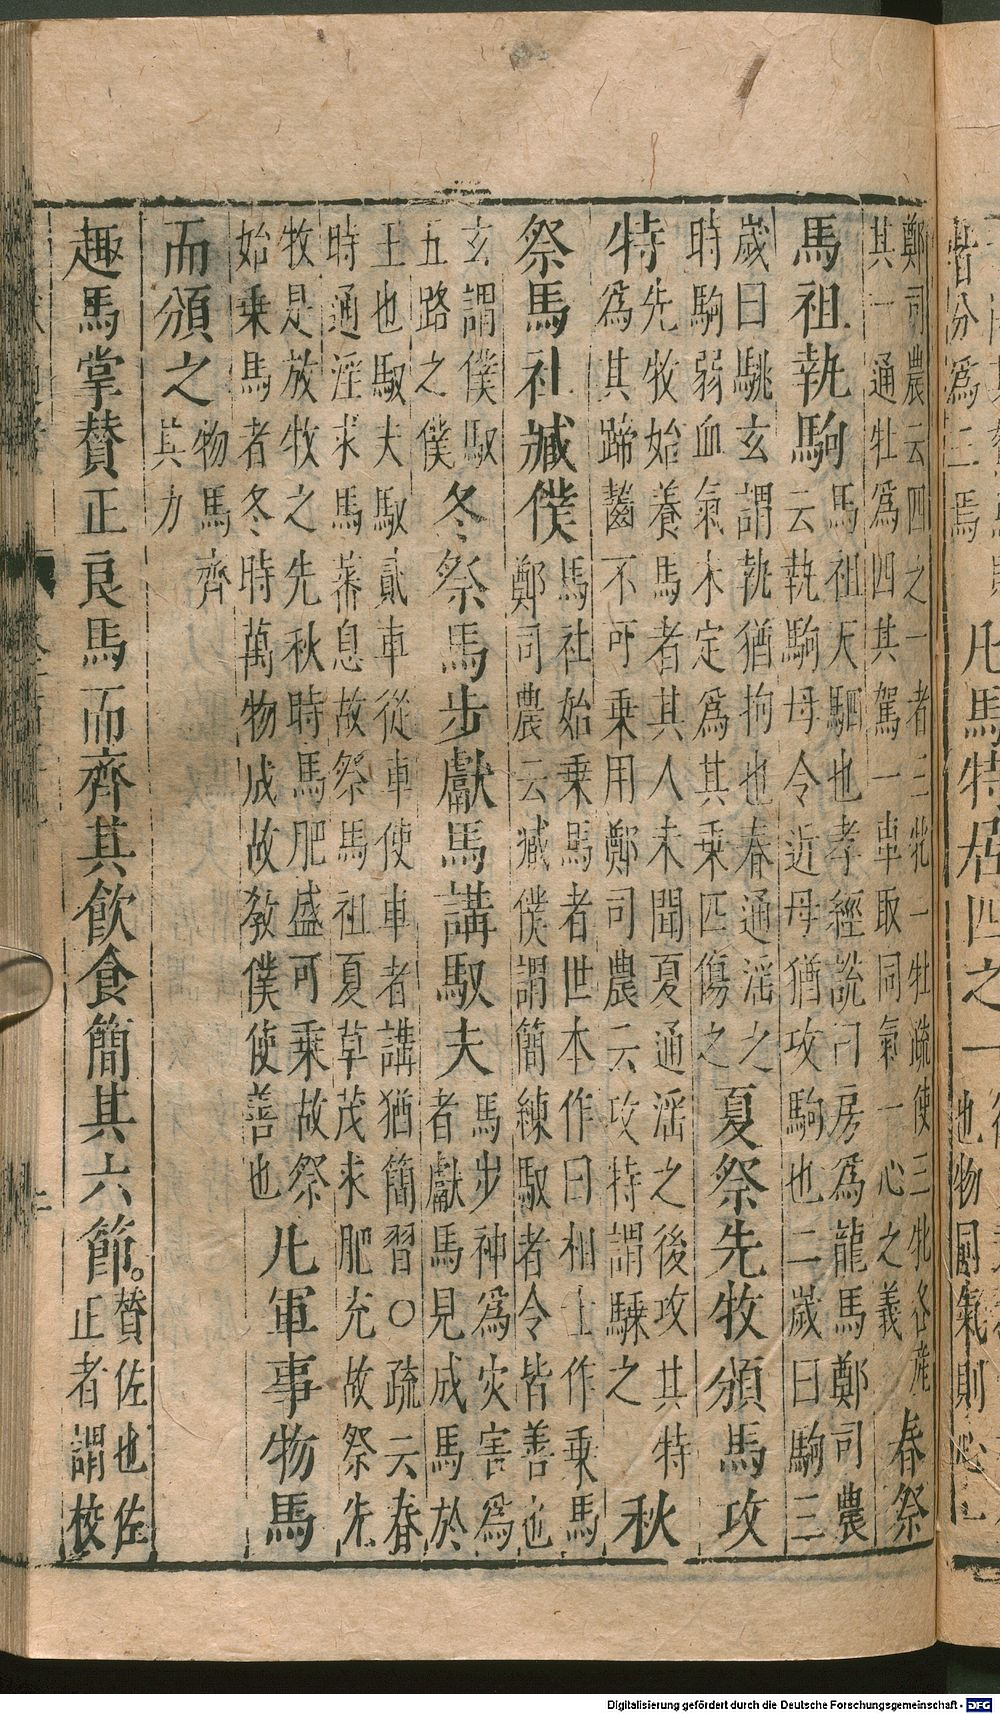 皆分為二焉
凡馬特居四之一
也物同氣則心一
鄭司農云四之一者三牝一牡疏使三牝各產
其一通牡為四其駕一車取同氣一心之義
春祭
馬祖執駒
馬祖天駟也孝經說曰房為龍馬鄭司農
云執駒母令近母猶攻駒也二歲曰駒三
歲曰駣玄謂執猶拘也春通淫之
時駒弱血氣未定為其乘匹傷之
夏祭先牧頒馬攻
特
先牧始養馬者其人未聞夏通淫之後攻其特
為其蹄齧不可乘用鄭司農云攻特謂騬之
秋
祭馬社臧僕
馬社始乘馬者世本作曰相士作乘馬
鄭司農云臧僕謂簡練馭者令皆善也
玄謂僕馭
五路之僕
冬祭馬步獻馬講馭夫
馬步神為灾害為
者獻馬見成馬於
王也馭夫馭貳車從車使車者講猶簡習○疏云春
時通淫求馬蕃息故祭馬祖夏草茂求肥充故祭先
牧是放牧之先秋時馬肥盛可乘故祭
始乘馬者冬時萬物成故教僕使善也
凡軍事物馬
而頒之
物馬齊
其力
趣馬掌贊正良馬而齊其飲食簡其六節。
贊佐也佐
正者謂校
Digitalisierung gefördert durch die Deutsche Forschungsgemeinschaft - DFG